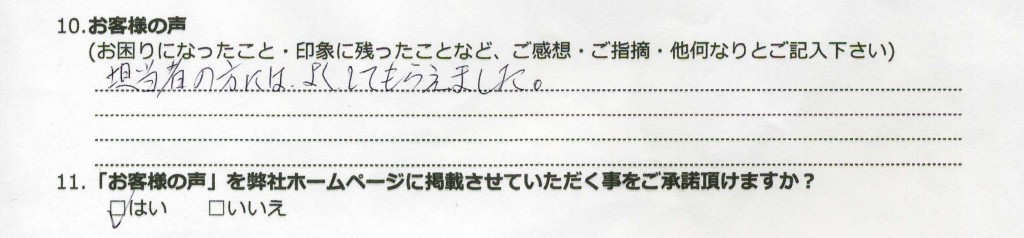 10.お客様の声
(お困りになったこと・印象に残ったことなど、ご感想・ご指摘・他何なりとご記入下さい)
担当者の方には、よくしてもらえました。
11.「お客様の声」を弊社ホームページに掲載させていただく事をご承諾頂けますか？
☑はい □いいえ